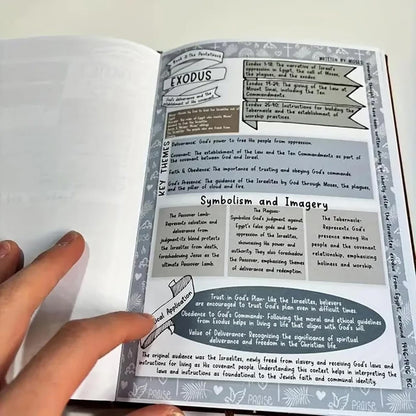 Book II the Pentateuch
WRITTEN BY MOSES
EXODUS
God's deliverance and the
establishment of His covenant
Exodus 1-18: The narrative of Israel's
oppression in Egypt, the call of Moses,
the plagues, and the exodus
Exodus 19-24: The giving of the Law at
Mount Sinai, including the Ten
Commandments
Exodus 25-40: Instructions for building the
Tabernacle and the establishment of
worship practices
KEY THEMES
Deliverance: God's power to free His people from oppression.
Covenant: The establishment of the Law and the Ten Commandments as part of
the covenant between God and Israel.
Faith & Obedience: The importance of trusting and obeying God's commands.
God's Presence: The guidance of the Israelites by God through Moses, the plagues,
and the pillar of cloud and fire.
Symbolism and Imagery
The Passover Lamb:
Represents salvation and
deliverance from
judgment-its blood protects
the Israelites from death,
foreshadowing Jesus as the
ultimate Passover Lamb.
The Plagues:
Symbolize God's judgment against
Egypt's false gods and their
oppression of the Israelites,
showcasing His power and
authority. They also foreshadow
the Passover, emphasizing themes
of deliverance and redemption.
The Tabernacle:
Represents God's
presence among His
people and the covenant
relationship, emphasizing
holiness and worship.
Application
Trust in God's Plan: Like the Israelites, believers
are encouraged to trust God's plan even in difficult times.
Obedience to God's Commands: Following the moral and ethical guidelines
from Exodus helps in living a life that aligns with God's will.
Value of Deliverance: Recognizing the significance of spiritual
deliverance and freedom in the Christian life.
The original audience was the Israelites, newly freed from slavery and receiving God's laws and
instructions for living as His covenant people. Understanding this context helps in interpreting the
laws and instructions as foundational to the Jewish faith and communal identity.
PRAISE
PRAISE